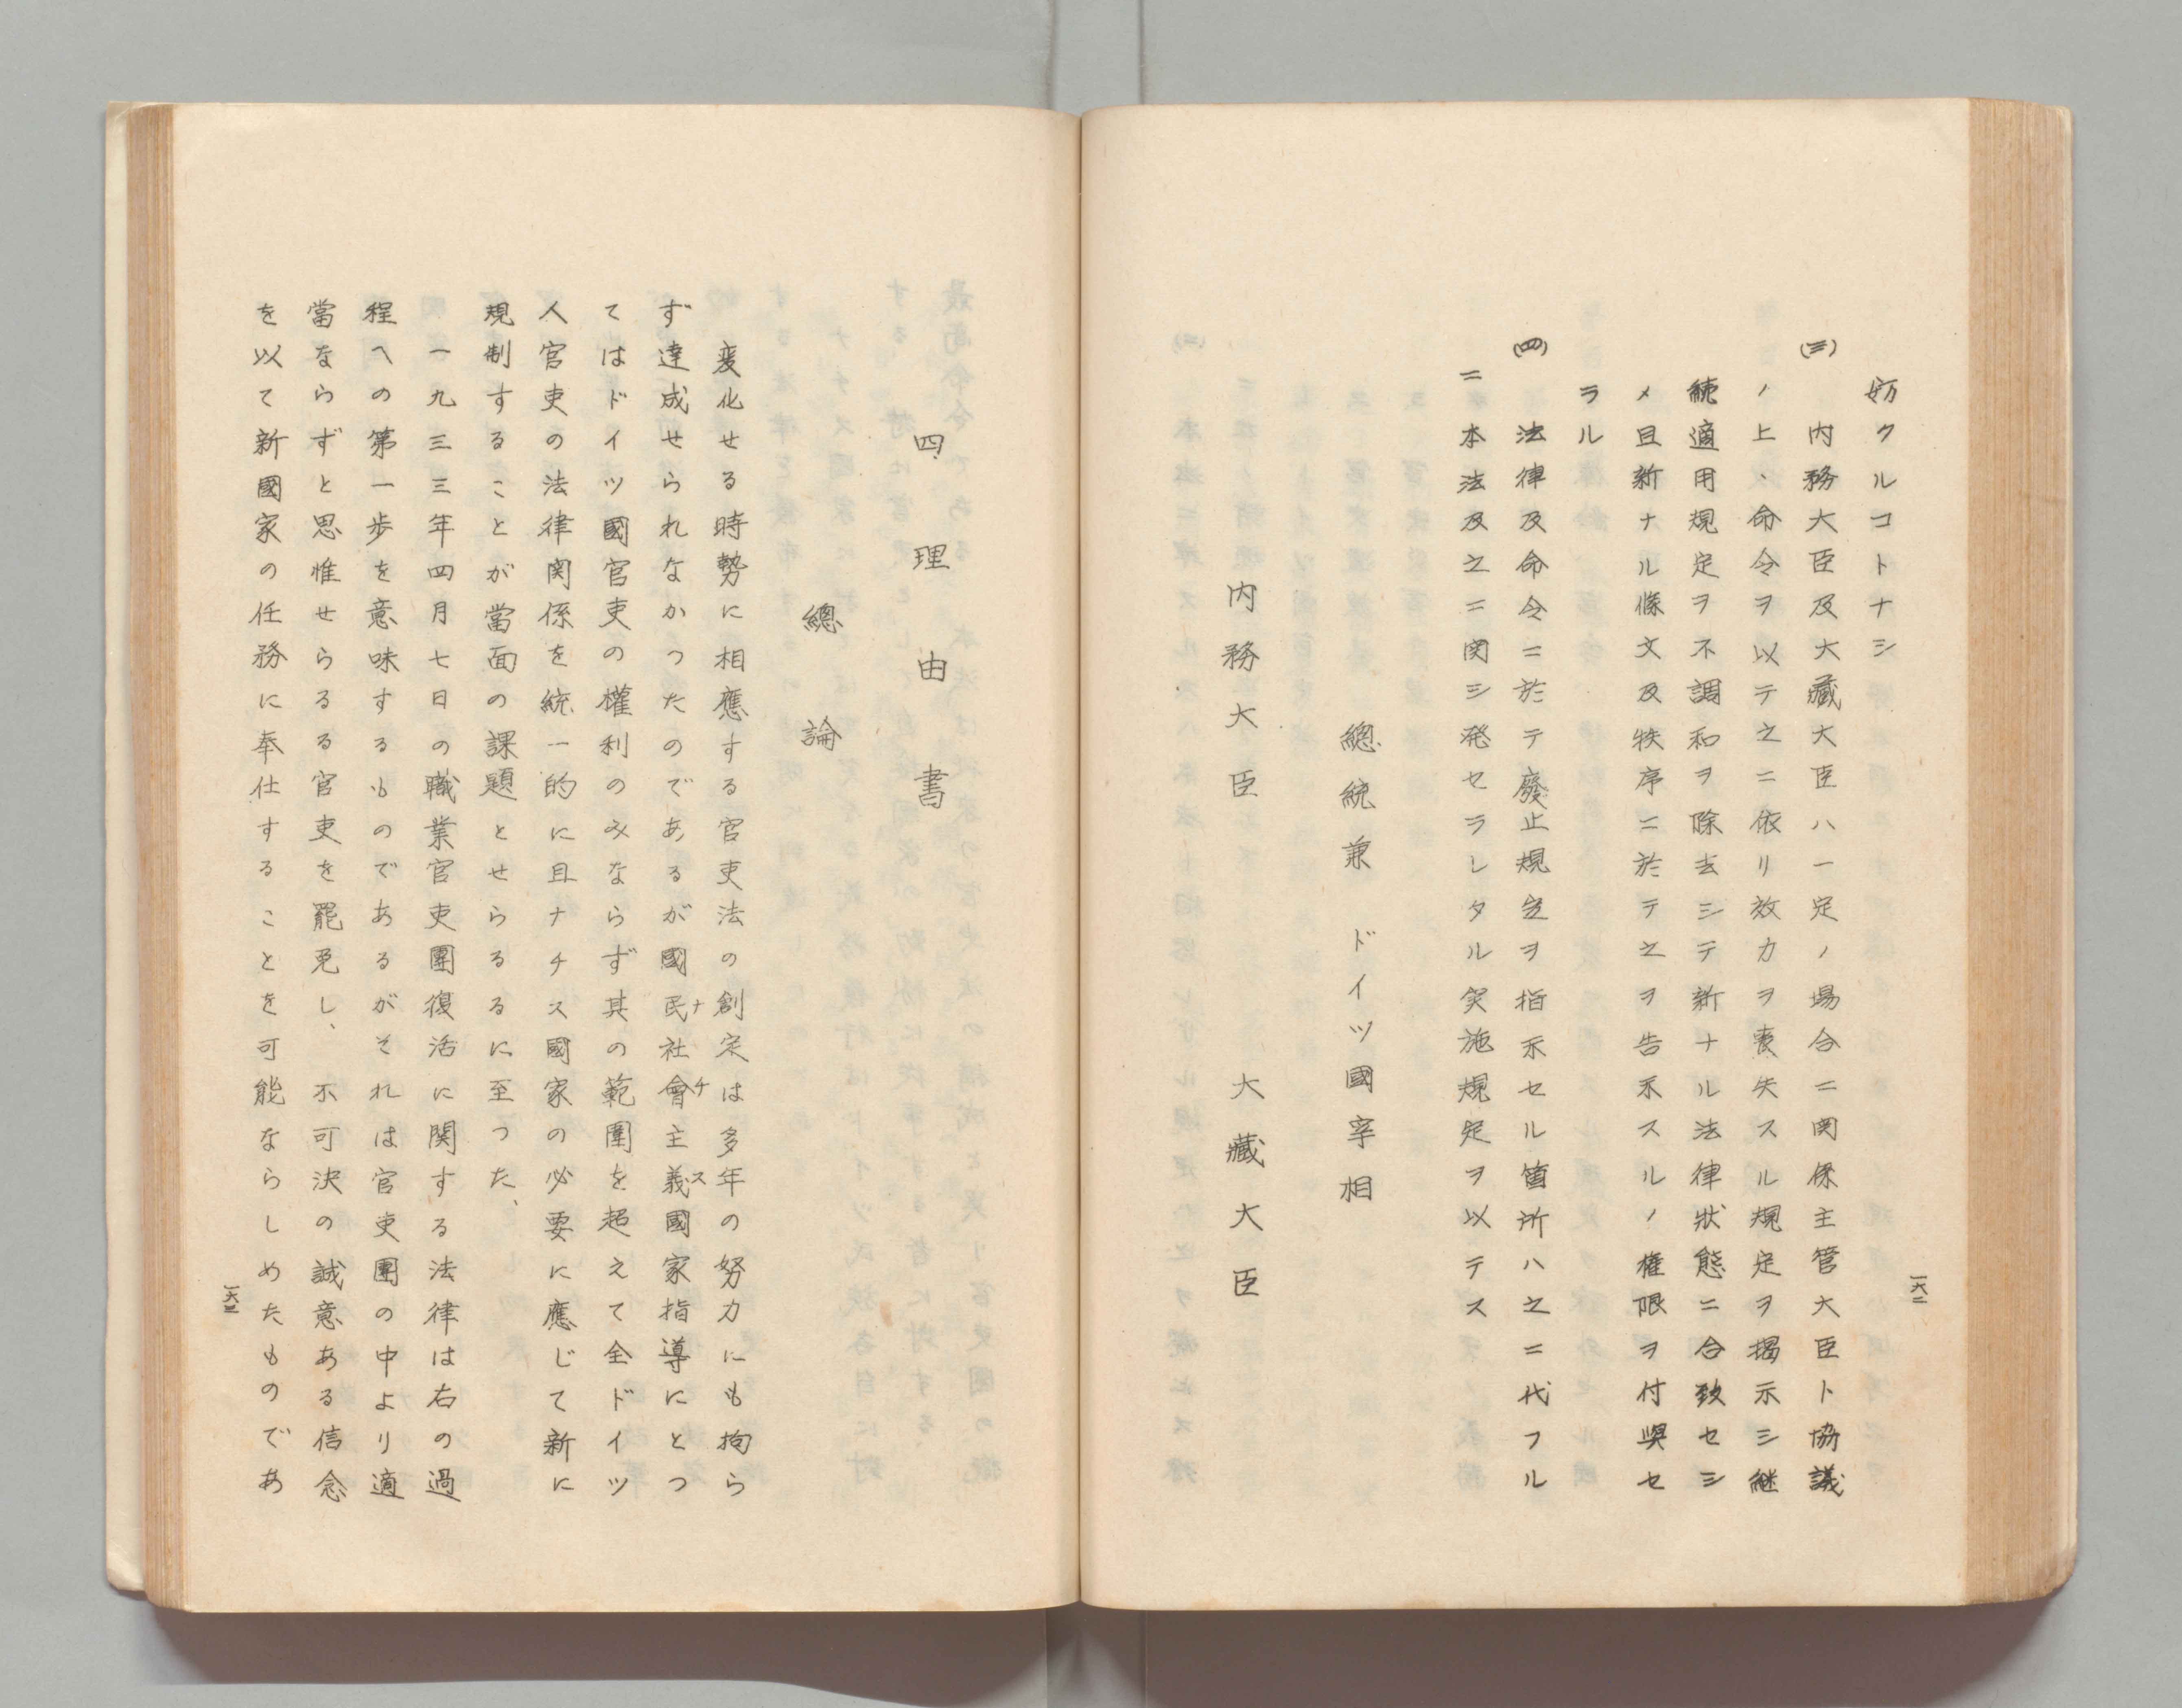 妨クルコトナシ
(三)　内務大臣及大藏大臣ハ一定ノ場合ニ関係主管大臣ト協議
ノ上、命令ヲ以テ之ニ依リ效力ヲ喪失スル規定ヲ揭示シ継
続適用規定ヲ不調和ヲ除去シテ新ナル法律狀態ニ合致セシ
メ且新ナル條文及秩序ニ於テ之ヲ告示スルノ権限ヲ付與セ
ラル
(四)　法律及命令ニ於テ廢止規定ヲ指示セル箇所ハ之ニ代フル
ニ本法及之ニ関シ発セラレタル実施規定ヲ以テス
總統兼　ドイツ國宰相
内務大臣　大藏大臣
一六二
四　理由書
總論
変化せる時勢に相應する官吏法の創定は多年の努力にも拘ら
ず達成せられなかつたのであるが國民社會主義國家指導にとつ
ナチス
てはドイツ國官吏の權利のみならず其の範圍を超えて全ドイツ
人官吏の法律関係を統一的に且ナチス國家の必要に應じて新に
規制することが當面の課題とせらるるに至つた、
一九三三年四月七日の職業官吏團復活に関する法律は右の過
程への第一步を意味するものであるがそれは官吏團の中より適
當ならずと思惟せらるる官吏を罷免し、不可決の誠意ある信念
を以て新國家の任務に奉仕することを可能ならしめたものであ
一六三